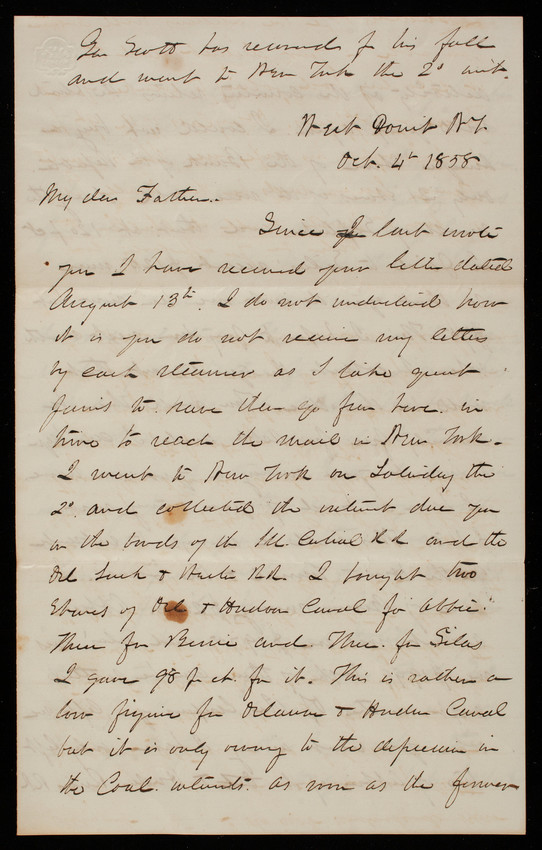 Gen Scott has recovered of his fall
and went to New York the 2d inst.
West Point N.Y.
Oct. 4th 1858
My dear Father.
Since I last wrote
you I have received your letter dated
August 13th. I do not understand how
it is you do not receive my letters
by each steamer as I take great
pains to have them go from here in
time to reach the mail in New York.
I went to New York on Saturday the
2d and collected the interest due you
on the bonds of the Ill. Central R R and the
Del Lack & Western R.R. I bought two
Shares of Del & Hudson Canal for Abbie.
Three for Bernie and Three for Silas
I gave 98 pr ct. for it. This is rather a
low figure for Delaware & Hudson Canal
but it is only owing to the depression in
the Coal interests. As soon as the